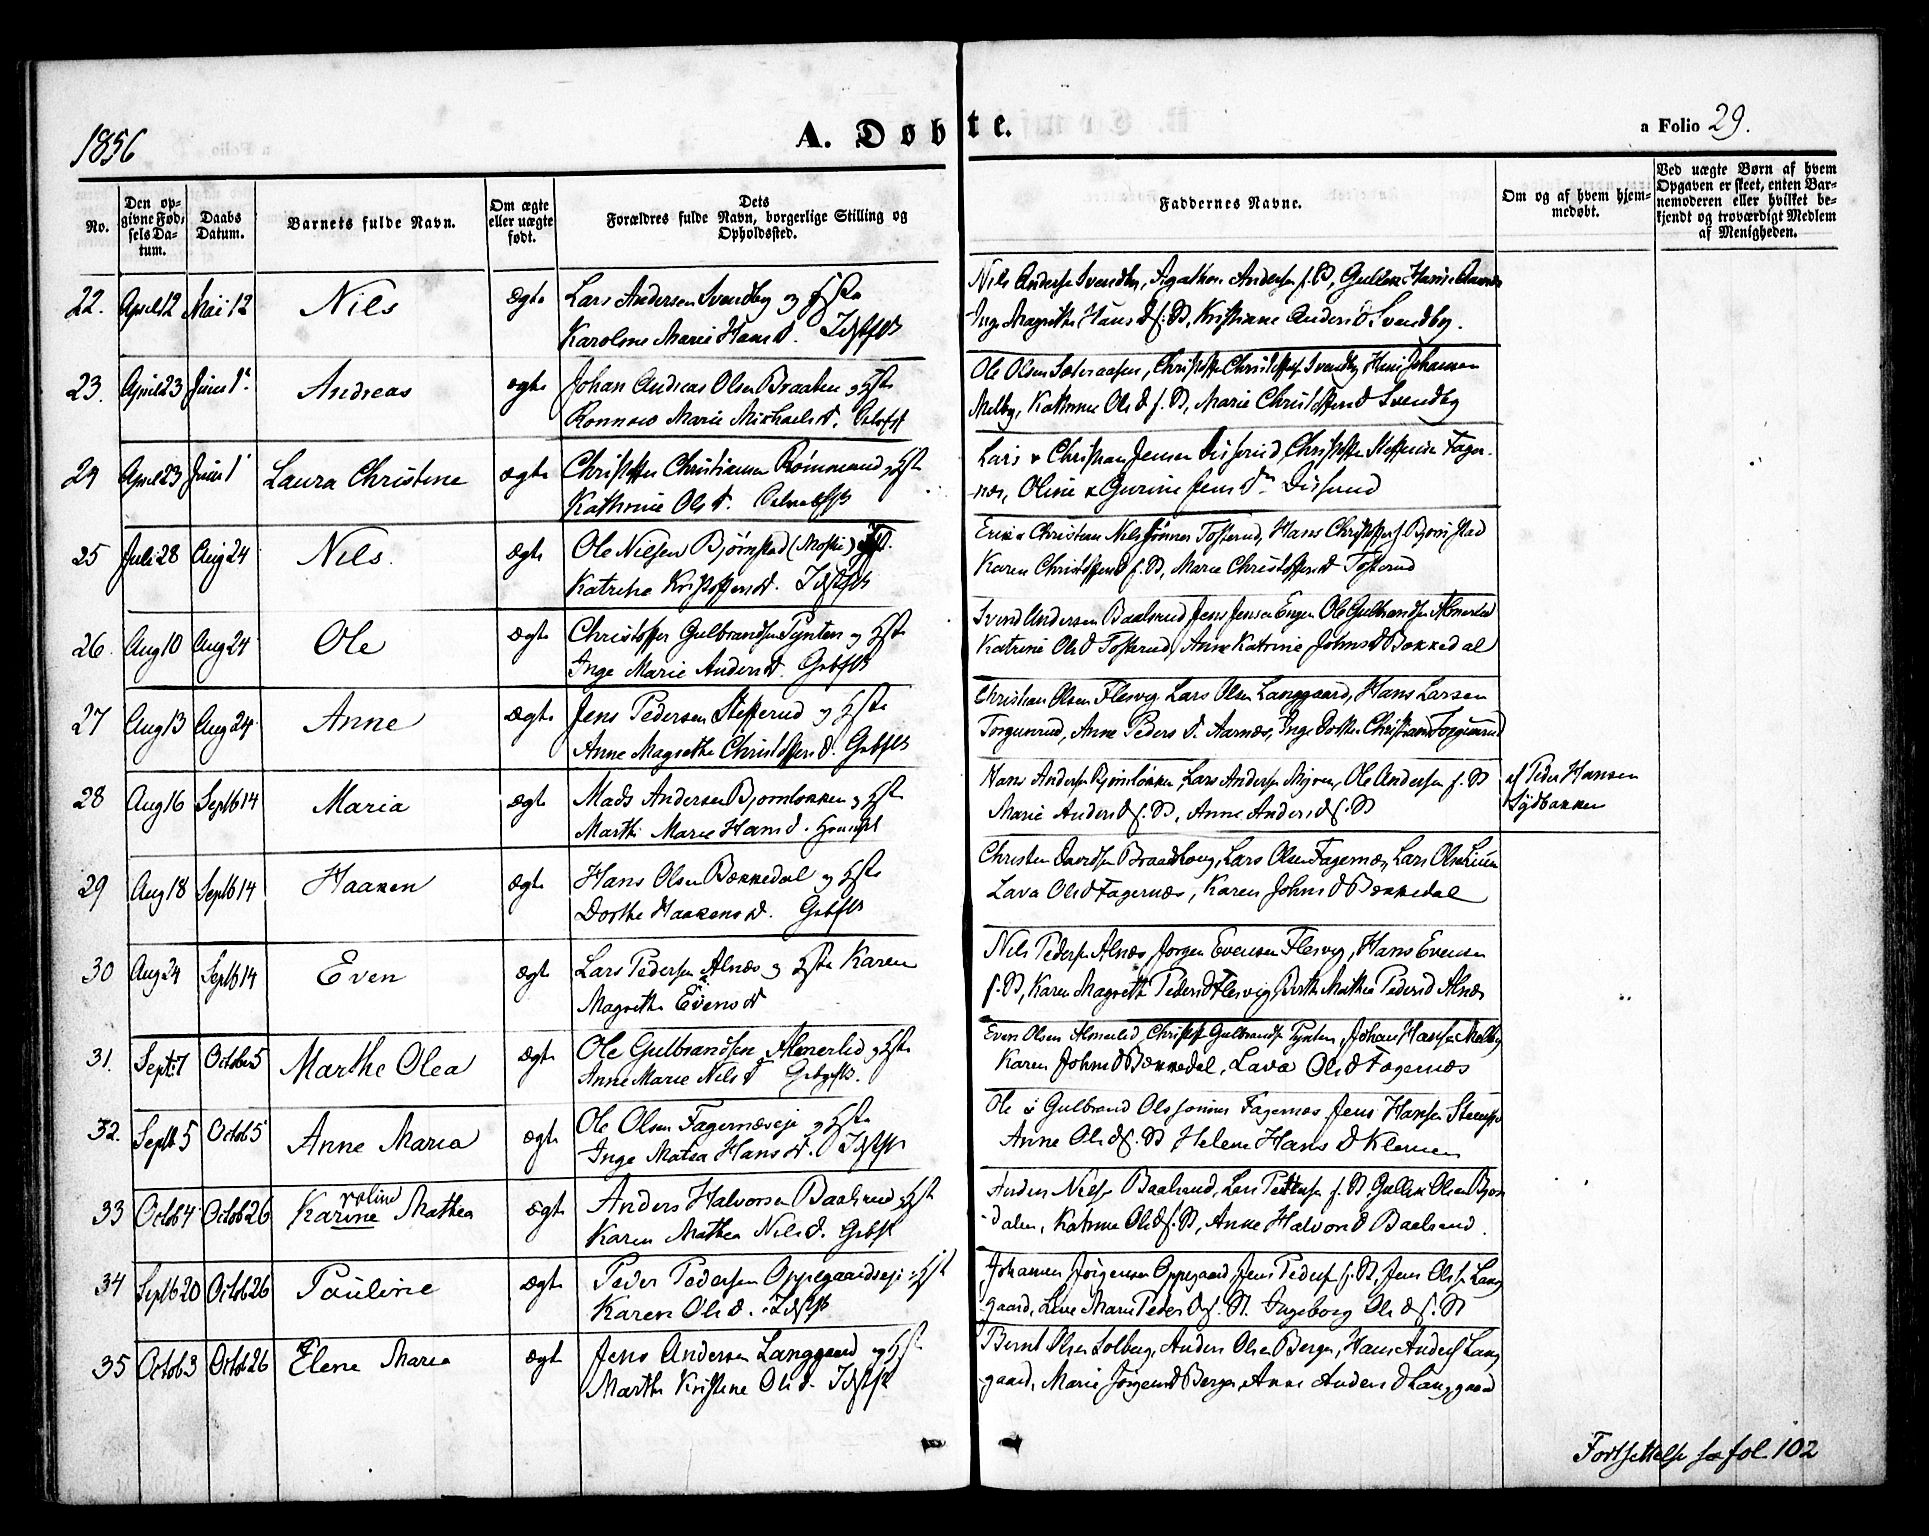 1856
A. Døbte.
a Folio 29.
No.
Den op-
givne Fød-
sels Da-
tum.
Daabs
Datum.
Barnets fulde Navn.
Om ægte
eller uægte
født.
Dets
Forældres fulde Navn, borgerlige Stilling og
Opholdssted.
Faddernes Navne.
Om og af hvem hjem-
medøbt.
Ved uægte Børn af hvem
Opgaven er skeet, enten Bar-
nemoderen eller hvilket be-
kjendt og troværdigt Medlem
af Menigheden.
22. April 12 Mai 12 Nils ægte Lars Andersen Svendby og Hste
Karoline Marie Hansd.
Nils Anders Svendby, Agathon Andersen f. St, Gullik Hansen
Inge Magrethe Hansd f. St, Kristiane Andersd Svendby.
23. April 23 Juni 1. Andreas ægte Johan Andreas Olsen Braaten og Hste
Ronnow Marie Mikkelsd.
Ole Olsen Sæteraasen, Christoffer Christoffersen Svendby Johannesen
Melby, Kathrine Olsd f. St, Marie Christoffersd Svendby
24 April 23 Juni 1 Laura Christine ægte Christoffer Christiansen og Hste
Kathrine Olsd.
Lars & Christian Jensen Christoffer Steffensen Fager-
næs, Oline & Gurine Jensd
25 Juli 28 Aug 24 Nils. ægte Ole Nilsen Bjørnstad
Katrine Kristoffersd.
Erik & Christian Nilssønner Tofterud, Hans Christoffers Bjørnstad
Karen Christoffersd f. St, Marie Christoffersd Tofterud
26. Aug 10 Aug 24 Ole ægte Christoffer Gulbrandsen Pynten og Hste
Inge Marie Andersd.
Svend Andersen Baalsrud Jens Jensen Engen Ole Gulbrandsen Almerlid
Katrine Olsd Tofterud, Anne Katrine Johnsd Bækkedal
27 Aug 13 Aug 24 Anne ægte Jens Pedersen Stefferud og Hste
Anne Magrethe Christoffersd.
Christian Olsen Flesvig Lars Olsen Langgaard, Hans Larsen
Torgunrud, Anne Pedersd. Aarnæs, Inge Dorthea Christiansd Torgunrud
28 Aug 16 Septb 14 Maria ægte Mads Andersen Bjørnløkken og Hste
Marthe Marie Hansd.
Hans Andersen Bjørnløkken, Lars Andersen Ole Andersen f. St
Marie Andersd f. St, Anne Andersd f. St
af Peder Hansen
Sydbakken
29 Aug 18 Septb 14 Haaken ægte Hans Olsen Bækkedal og Hste
Dorthe Haakensd.
Christen Davidsen Braadhoug, Lars Olsen Fagernæs, Lars Olsen
Lava Olsd Fagernæs, Karen Johnsd Bækkedal
30 Aug 24 Septb 14 Even ægte Lars Pedersen Alnæs og Hste Karen
Magrethe Evensd
Nils Pedersen Alnæs, Jørgen Evensen Flesvig, Hans Evensen
f. St, Karen Magrethe Pedersd Flesvig Berthe Mathea Pedersd Alnæs
31. Sept. 7 October 5 Marthe Olea ægte Ole Gulbrandsen Almerlid og Hste
Anne Marie Nilsd
Even Olsen Almerlid, Christoffer Gulbrandsen Pynten, Johan Hansen Melby
Karen Johnsd Bækkedal, Lava Olsd Fagernæs
32. Septb 5 Octob 5 Anne Maria ægte Ole Olsen Fagernæseje og Hste
Inge Matea Hansd.
Ole & Gulbrand Olssønner Fagernæs Jens Hansen
Anne Olsd f. St Helene Hansd Klemen
33 Octob 4 Octob 26 Karine roline Mathea ægte Anders Halvorsen Baalsrud og Hste
Karen Mathea Nilsd.
Anders Nilsen Baalsrud, Lars Pettersen f. St. Gullik Olsen Bjørn-
dalen, Katrine Olsd f. St, Anne Halvorsd Baalsrud.
34 Septb 20 Octob 26 Pauline ægte Peder Pedersen Oppegaardseje og Hste
Karen Olsd.
Johannes Jørgensen Oppegaard, Jens Pedersen f. St, Jens Olsen Lang-
gaard, Marie Pedersd f. St. Ingeborg Olsd f. St
35 Octob 3 Octob 26 Elene Maria ægte Jens Andersen Langgaard og Hste
Marthe Kristine Olsd.
Bernt Olsen Solberg, Anders Olsen Berger, Hans Andersen Lang-
gaard, Marie Jørgensd Berger, Anne Andersd Langgaard
Fortsættelse se fol. 102